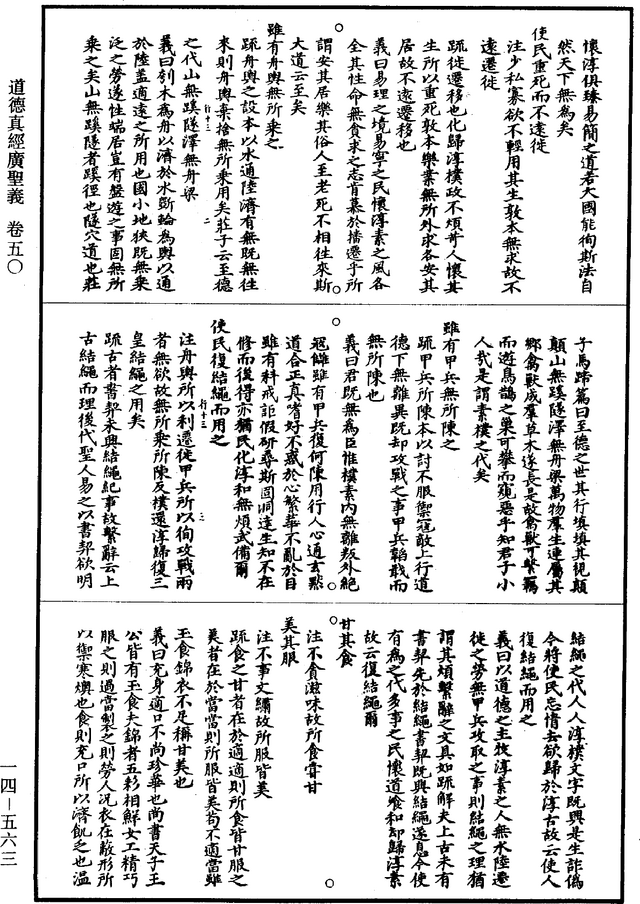 懷淳俱臻易簡之道若大國能徇斯法自
然天下無為矣
使民重死而不遠徙
注少私寡欲不輕用其生敦本無求故不
遠遷徙
疏徙遷移也化歸淳樸政不煩苛人懷其
生所以重死敦本樂業無所外求各安其
居故不遠遷移也
義曰易理之境易寧之民懷淳素之風各
全其性命無貪求之志肯慕於播遷乎所
謂安其居樂其俗人至老死不相往來斯
大道云至矣
雖有舟輿無所乘之
疏舟輿之設本以水通陸濟有無既無往
來則舟輿棄捨無所乘用矣莊子云至德
之代山無蹊隧澤無舟梁
義曰刳木為舟以濟於水斲輪為輿以通
於陸蓋適遠之所用也國小地狹既無乘
泛之勞遂性端居豈有盤遊之事固無所
乘之矣山無蹊隧者蹊徑也隧穴道也莊
子馬蹄篇曰至德之世其行填填其視顛
顛山無蹊隧澤無舟梁萬物群生連屬其
鄉禽獸成羣草木遂長是故禽獸可繫羈
而遊鳥鵲之巢可攀而窺惡乎知君子小
人哉是謂素樸之代矣
雖有甲兵無所陳之
疏甲兵所陳本以討不服禦寇敵上行道
德下無離異既却攻戰之事甲兵韜戢而
無所陳也
義曰君既無為臣惟樸素內無離叛外絕
寇讎雖有甲兵復何陳用行人心通玄默
道合正真嗜好不惑於心繁華不亂於目
雖有科戒詎假研尋斯固洞達生知不在
修而後得亦猶民化淳和無煩武備爾
使民復結繩而用之
注舟輿所以利遷徙甲兵所以徇攻戰兩
者無欲故無所乘所陳反樸還淳歸復三
皇結繩之用矣
疏古者書契未興結繩紀事故繫辭云上
古結繩而理後代聖人易之以書契欲明
結繩之代人人淳樸文字既興是生詐偽
今將使民忘情去欲歸於淳古故云使人
復結繩而用之
義曰以道德之主牧淳素之人無水陸遷
徙之勞無甲兵攻取之事則結繩之理猶
謂其煩繫辭之文具如疏解夫上古未有
書契先於結繩書契既興結繩遂息今使
有為之代多事之民懷道飡和却歸淳素
故云復結繩爾
甘其食
注不貪滋味故所食皆甘
美其服
注不事文繡故所服皆美
疏食之甘者在於適適則所食皆甘服之
美者在於當當則所服皆美苟不適當雖
玉食錦衣不足稱甘美也
義曰充身適口不尚珍華也尚書天子王
公皆有玉食夫錦者五彩相鮮女工精巧
服之則過當製之則勞人況衣在蔽形所
以禦寒燠也食則充口所以濟飢乏也溫
道德真經廣聖義 卷五〇
一四－五六三